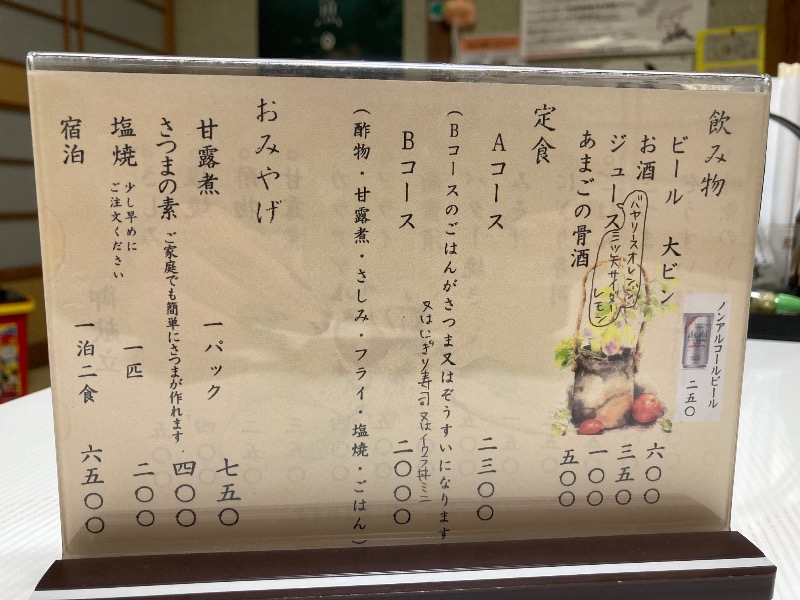 飲み物
ビール 大ビン 六〇〇
ノンアルコールビール 二五〇
お酒 三五〇
ジュース 一〇〇
バヤリースオレンジ
三ツ矢サイダー
レモン
あまごの骨酒 五〇〇
定食
Aコース 二三〇〇
(Bコースのごはんがさつま又はぞうすいになります
又はにぎり寿司 又はイクラ丼ミニ
Bコース 二〇〇〇
(酢物・甘露煮・さしみ・フライ・塩焼・ごはん)
おみやげ
甘露煮 一パック 七五〇
さつまの素 ご家庭でも簡単にさつまが作れます. 四〇〇
塩焼 少し早めに
ご注文ください
一匹 二〇〇
宿泊 一泊二食 六五〇〇